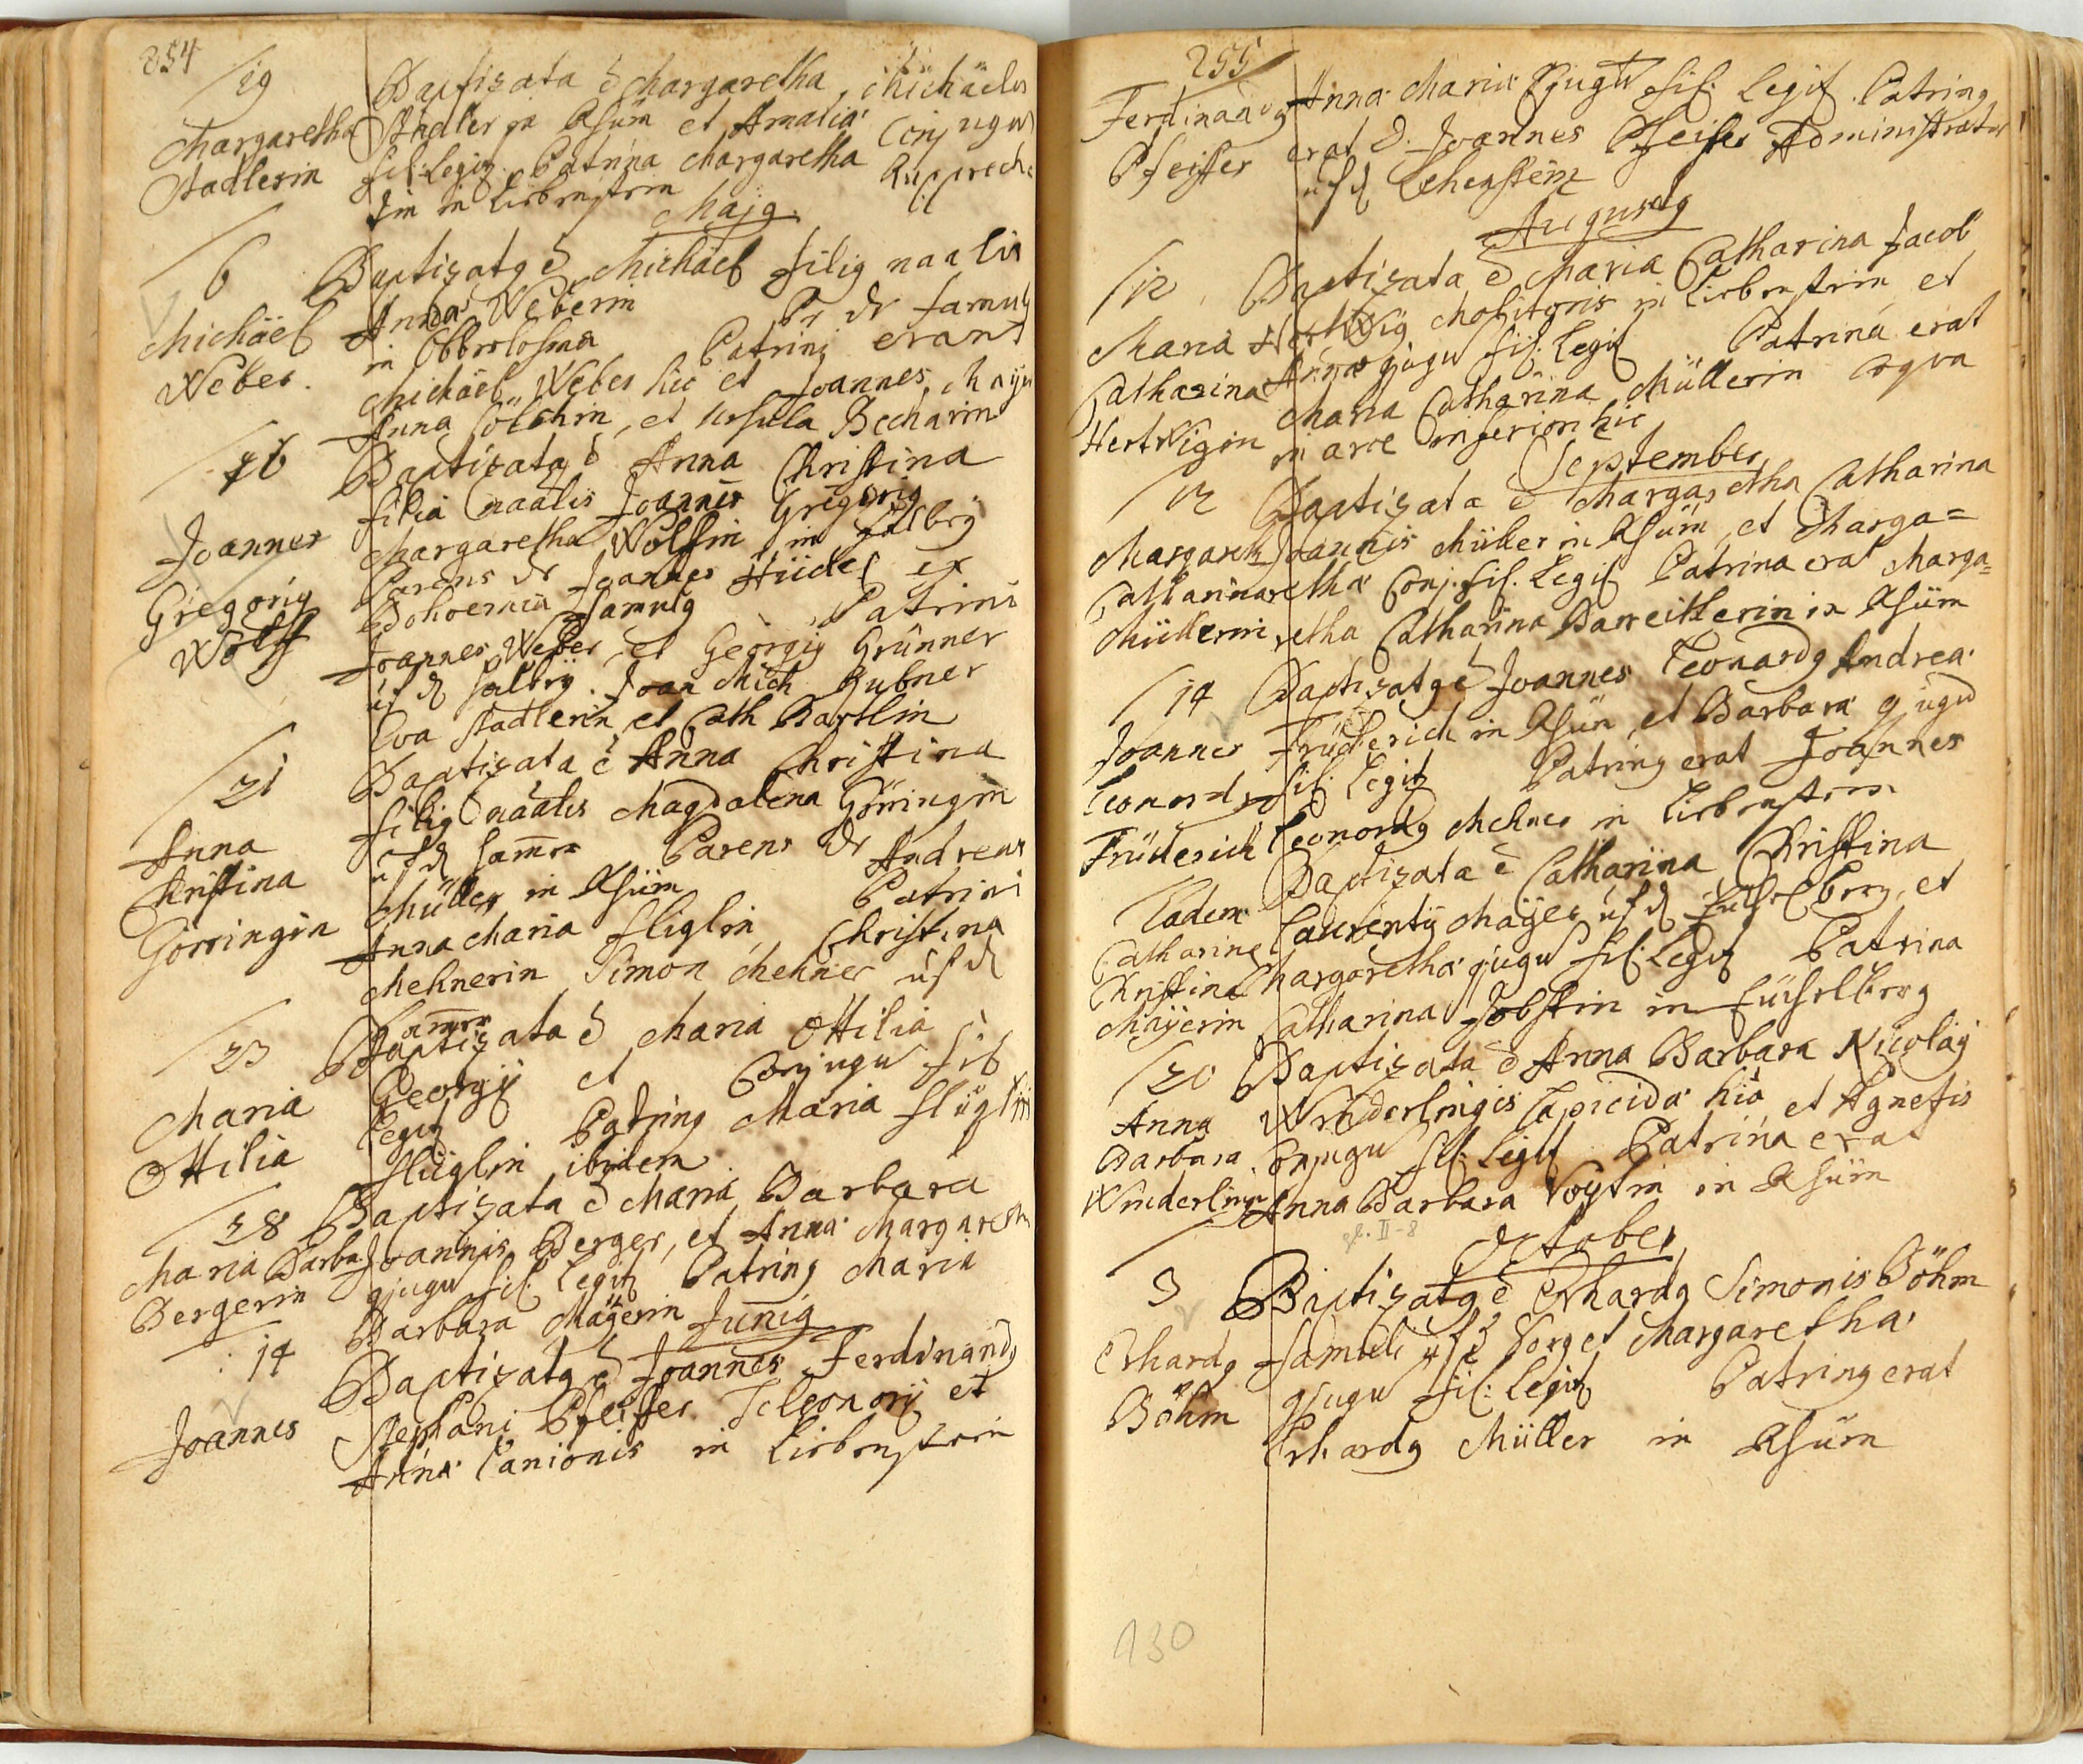 254
19
Margaretha
Stadlerin
Baptizata ē Margaretha, Michäelis
Stadler in Ahüm et Amaliæ Conjugum
fil: legit. Patrina Margaretha Rupprech
tin in Liebenstein
Majg
6
Michäel
Weber.
Baptizatg ē Michäel filig naalis
Annæ Weberin Pr dr famulg
in Patrinj erant
Michäel Weber hic et Joannes Mayer
Anna et Ursula Becharin
16
Joannes
Gregorig
Wolff
Baptizatg ē Anna Christina
filia naalis Joannes Gregorig
Margaretha Wolffin in
Parens dr Joannes Hüdel ex
Bohoemia famulg Patrini
Joannes Weber et Georgig Grünner
Joan Mich Hubner
Eva Stadlerin et Cath Bartlin
21
Anna
Christina
Görringin
Baptizata ē Anna Christina
filig naalis Magdalena Görringin
ufd hammer Parens dr Andreas
Müller in Ahüm Patrini
Anna Maria fliglin Christina
Mehnerin Simon Mehner ufd
hammer
23
Maria
Ottilia
Baptizata ē Maria Ottilia
Georgÿ et Conjugum fil
legit Patring Maria flüglin
flüglin ibidem
28
Maria Barba
Bergerin
Baptizata ē Maria Barbara
Joannis Berger, et Anna Margaretha
gjugum fil: legit Patring Maria
Barbara Mäÿerin
Junig
14
Joannes
Baptizatg ē Joannes Ferdinandg
Stephani Pfeiffer Teleonarÿ et
Anna in Liebenstein
255
Ferdinandg
Pfeiffer
Anna Maria Cjugum fil: legit Patring
erat D. Joannes Pfeiffer Administrator
ufd Lehenstein
Augustg
12
Maria
Catharina
Hertwigin
Baptizata ē Maria Catharina Jacob
Hertwig Molitoris in Liebenstein et
Anna gjugum fil: legit Patrina erat
Maria Catharina Müllerin
in arce inferiori hic
September
12
Margareth
Catharina
Müllerin
Baptizata ē Margaretha Catharina
Joannis Müller in Ahüm, et Marga=
retha Conj. fil. legit Patrina erat Marga=
retha Catharina Barreitherin in Ahüm
14
Joannes
Leonardg
Früderich
Baptizatg ē Joannes Leonardg Andrea
Früderich in Ahüm, et Barbara gjugum
fil: legit Patring erat Joannes
Leonardg Mehner in Liebenstein
Eadem
Catharina
Christina
Mayerin
Baptizata ē Catharina Christina
Laurentÿ Mäÿer ufd, et
Margaretha gjugum fil: legit Patrina
Catharina Jobstin in
20
Anna
Barbara
Winderlingin
Baptizata ē Anna Barbara Nicolaÿ
Winderlingis lapicida hic et Agnetis
Conjugum fil: legit Patrina erat
Anna Barbara Voÿtin in Ahüm
October
3
Erhardg
Böhm
Baptizatg ē Erhardg Simonis Böhm
famuli et Margaretha
gjugum fil: legit Patring erat
Erhardg Müller in Ahüm
130